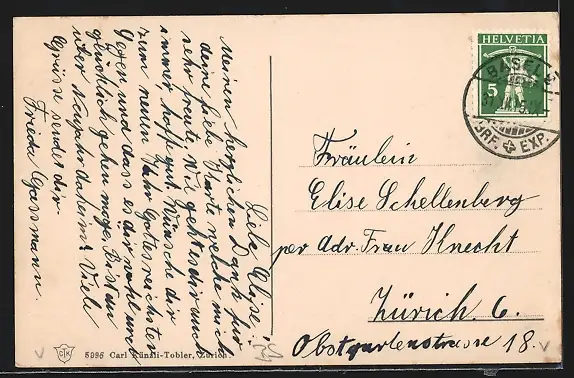 Liebe Elise!
Meinen herzlichen Dank für
deine liebe Karte welche mich
sehr freute. Wie geht es dir auch
immer, hoffe gut. Wünsche dir
zum neuen Jahr Gottes reichsten
Segen und dass es dir wohl und
glücklich gehen möge. Bist du
über Neujahr daheim? Viele
Grüsse sendet dir
Frieda Gassmann.
HELVETIA
5
BASEL
BRF. EXP.
Fräulein
Elise Schellenberg
per Adr. Frau Knecht
Zürich 6.
Obstgartenstrasse 18.
CTK
5996 Carl Künzli-Tobler, Zürich